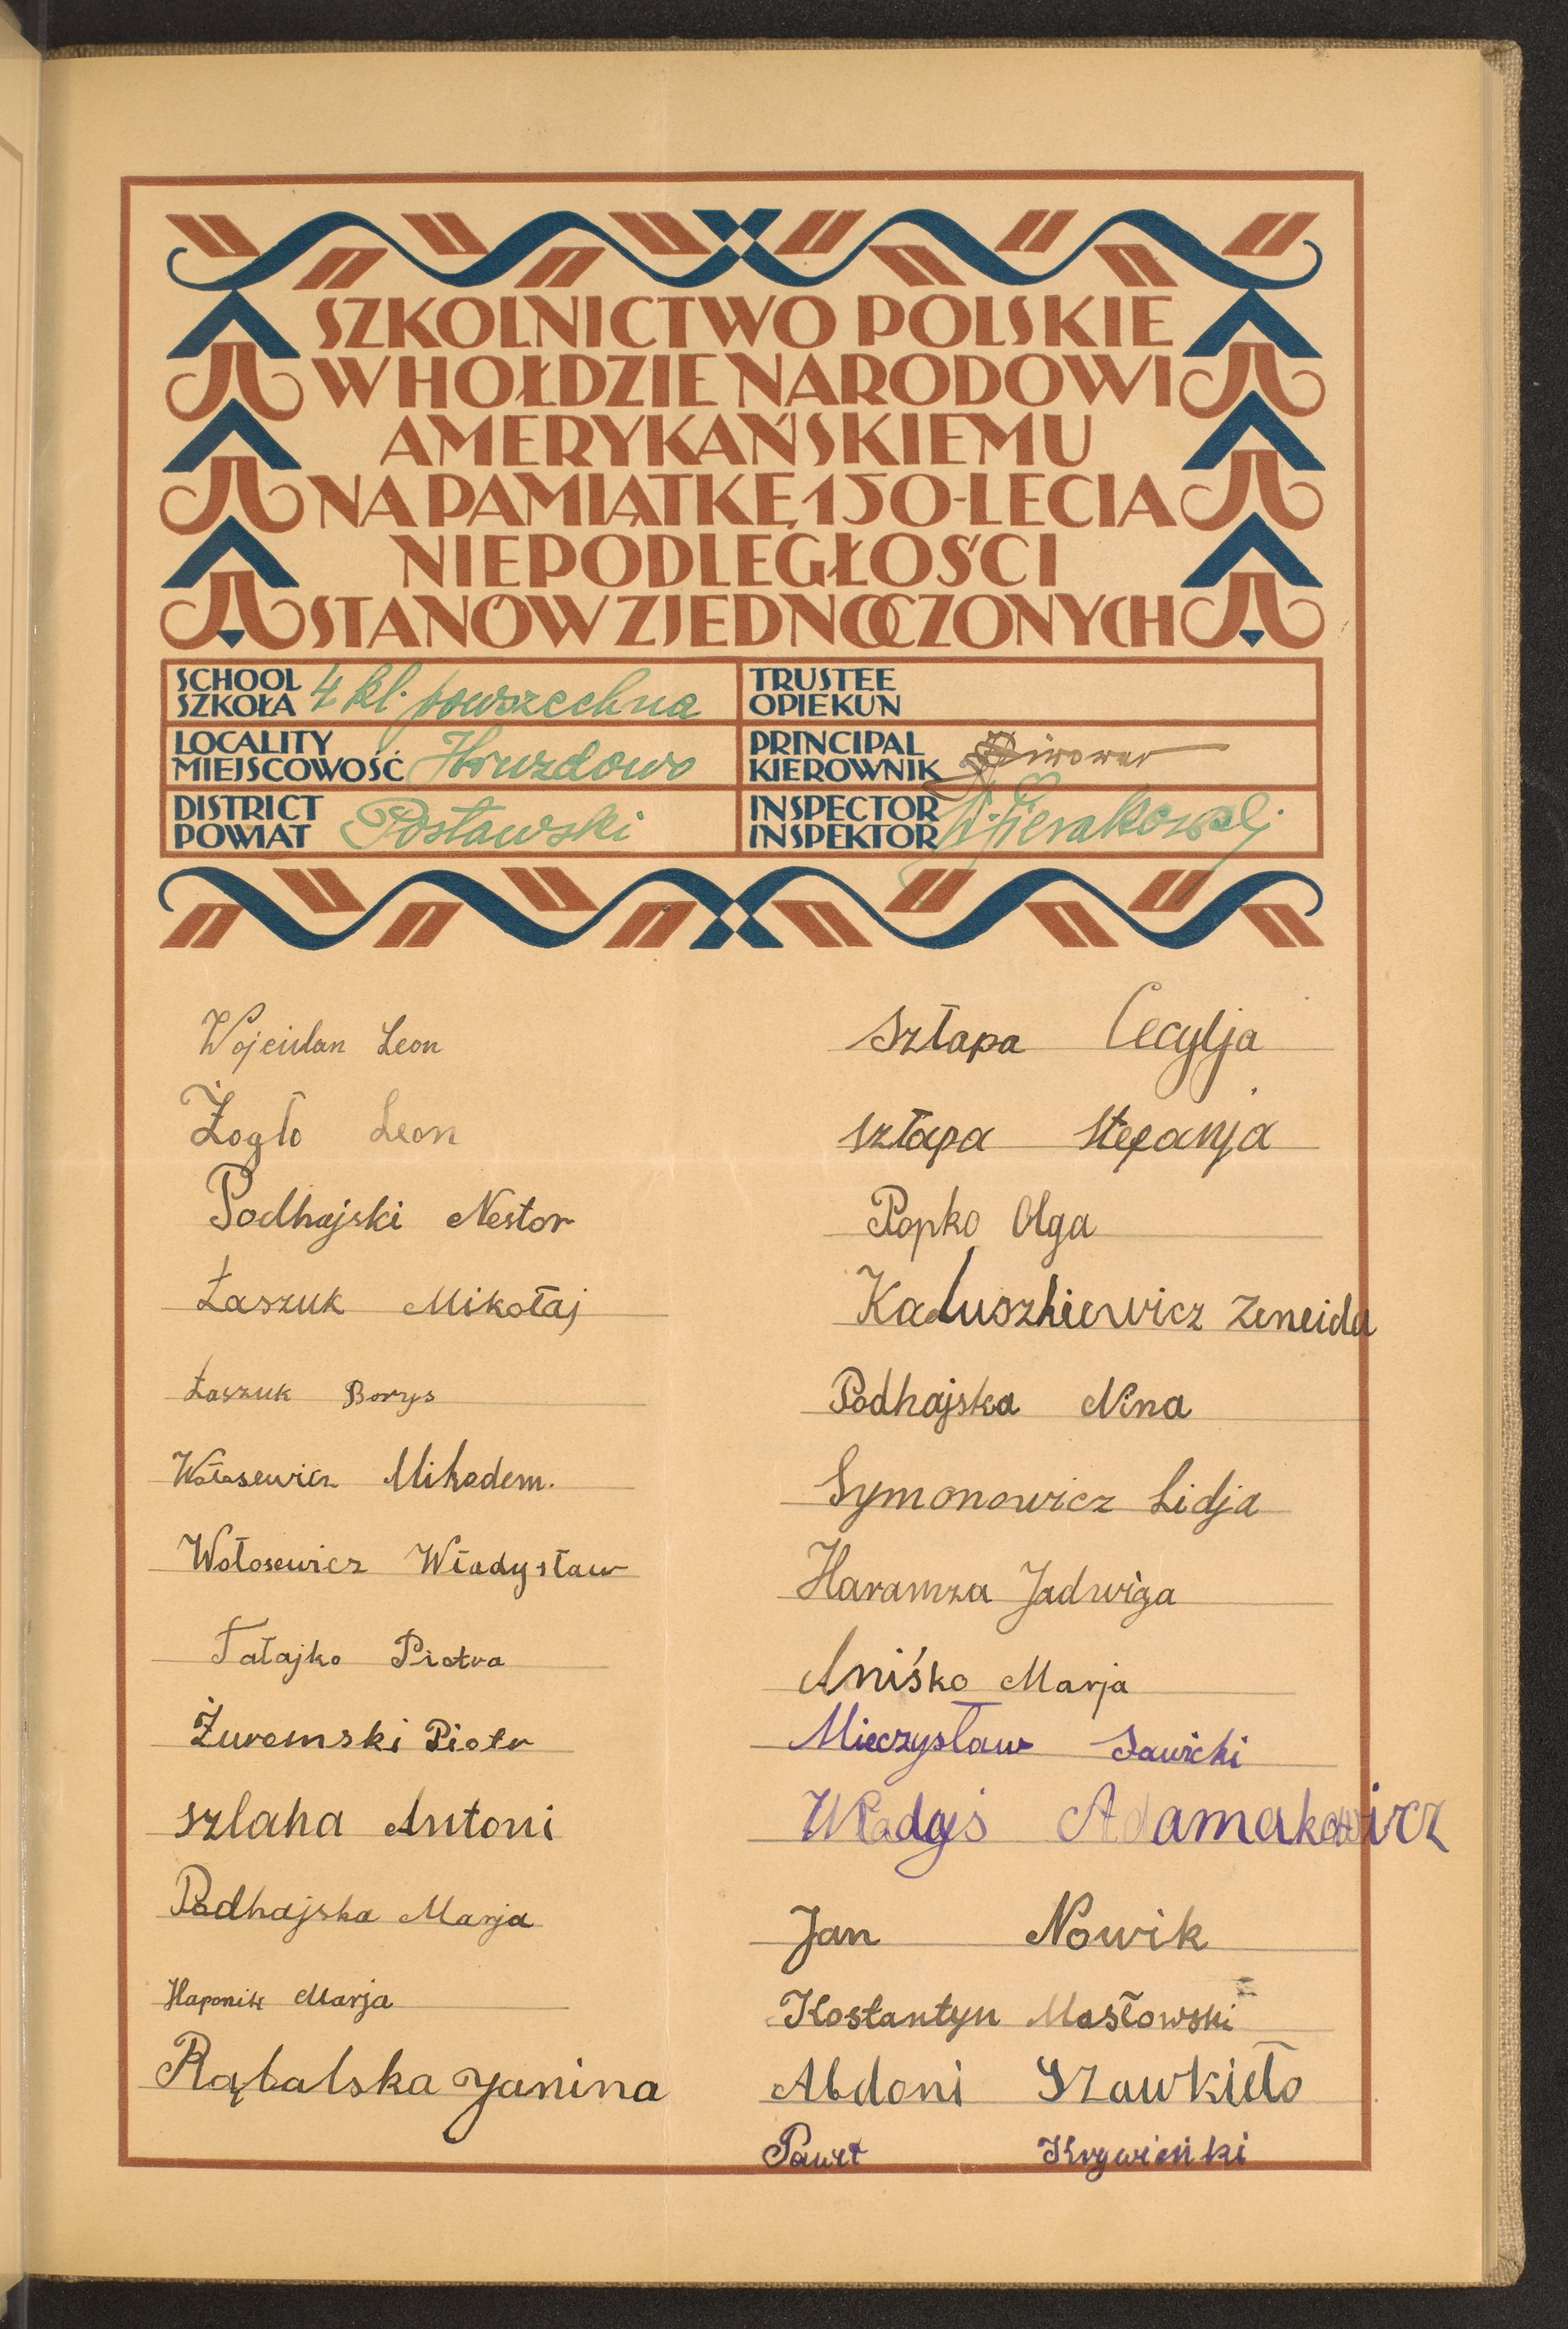 SZKOLNICTWO POLSKIE
W HOŁDZIE NARODOWI
AMERYKAŃSKIEMU
NA PAMIĄTKĘ 150-LECIA
NIEPODLEGŁOŚCI
STANÓW ZJEDNOCZONYCH
SCHOOL
SZKOŁA 4 kl. powszechna
LOCALITY
MIEJSCOWOŚĆ Hruzdowo
DISTRICT
POWIAT Postawski
TRUSTEE
OPIEKUN
PRINCIPAL
KIEROWNIK Piwowar
INSPECTOR
INSPEKTOR
Leon
Żogło Leon
Podhajski Nestor
Łaszuk Mikołaj
Łaszuk Borys
Wołosewicz Mikodem.
Wołosewicz Władysław
Tałajko Piotra
Żuromski Piotr
Szlaha Antoni
Podhajska Marja
Haponik Marja
Rąbalska Janina
Sztapa Cecylja
Sztapa Stefanja
Popko Olga
Kaduszkiewicz Zeneida
Podhajska Nina
Symonowicz Lidja
Haramza Jadwiga
Aniśko Marja
Mieczysław Sawicki
Władyś Adamakowicz
Jan Nowik
Kostantyn Masłowski
Abdoni Szawkieło
Paweł Krywieńki